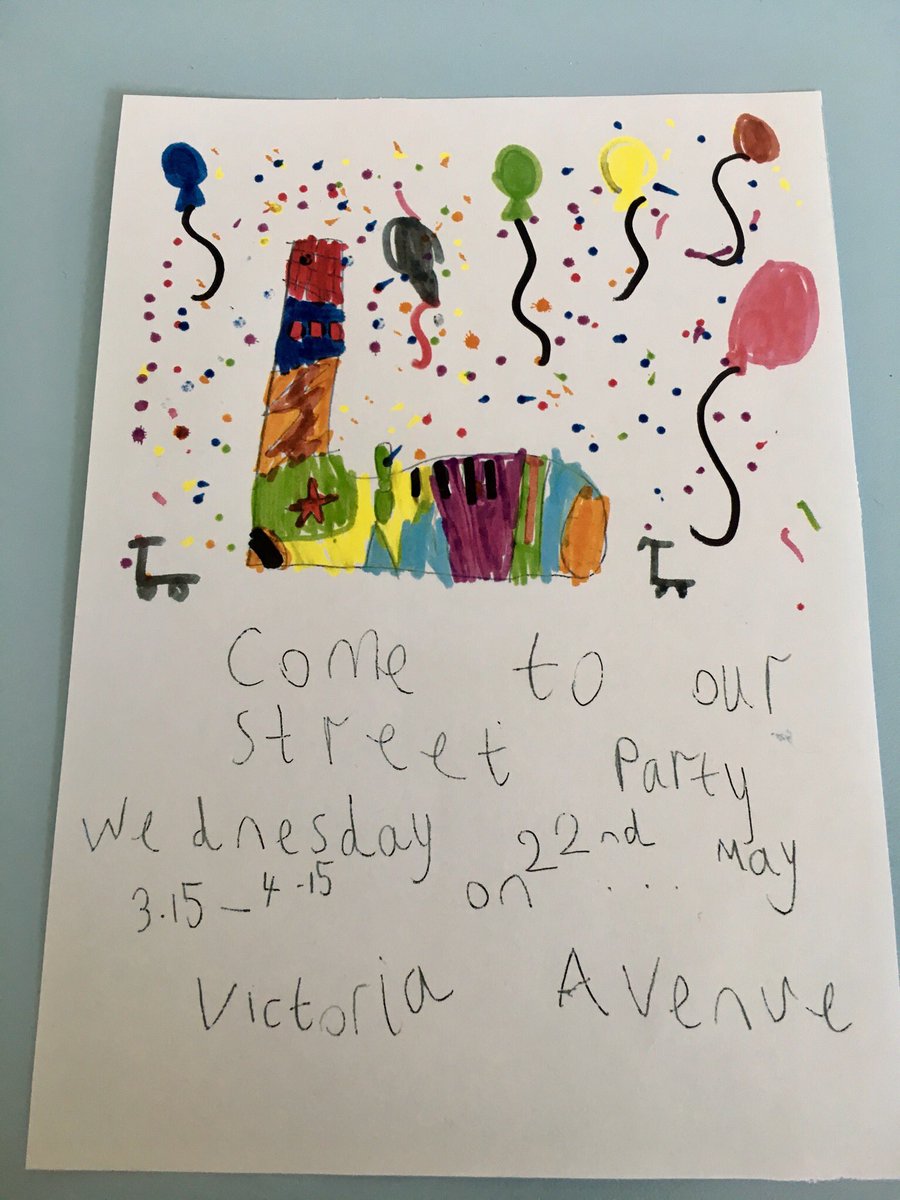 Come to our
street Party
Wednesday 22nd May
3.15 - 4.15 on ...
Victoria Avenue